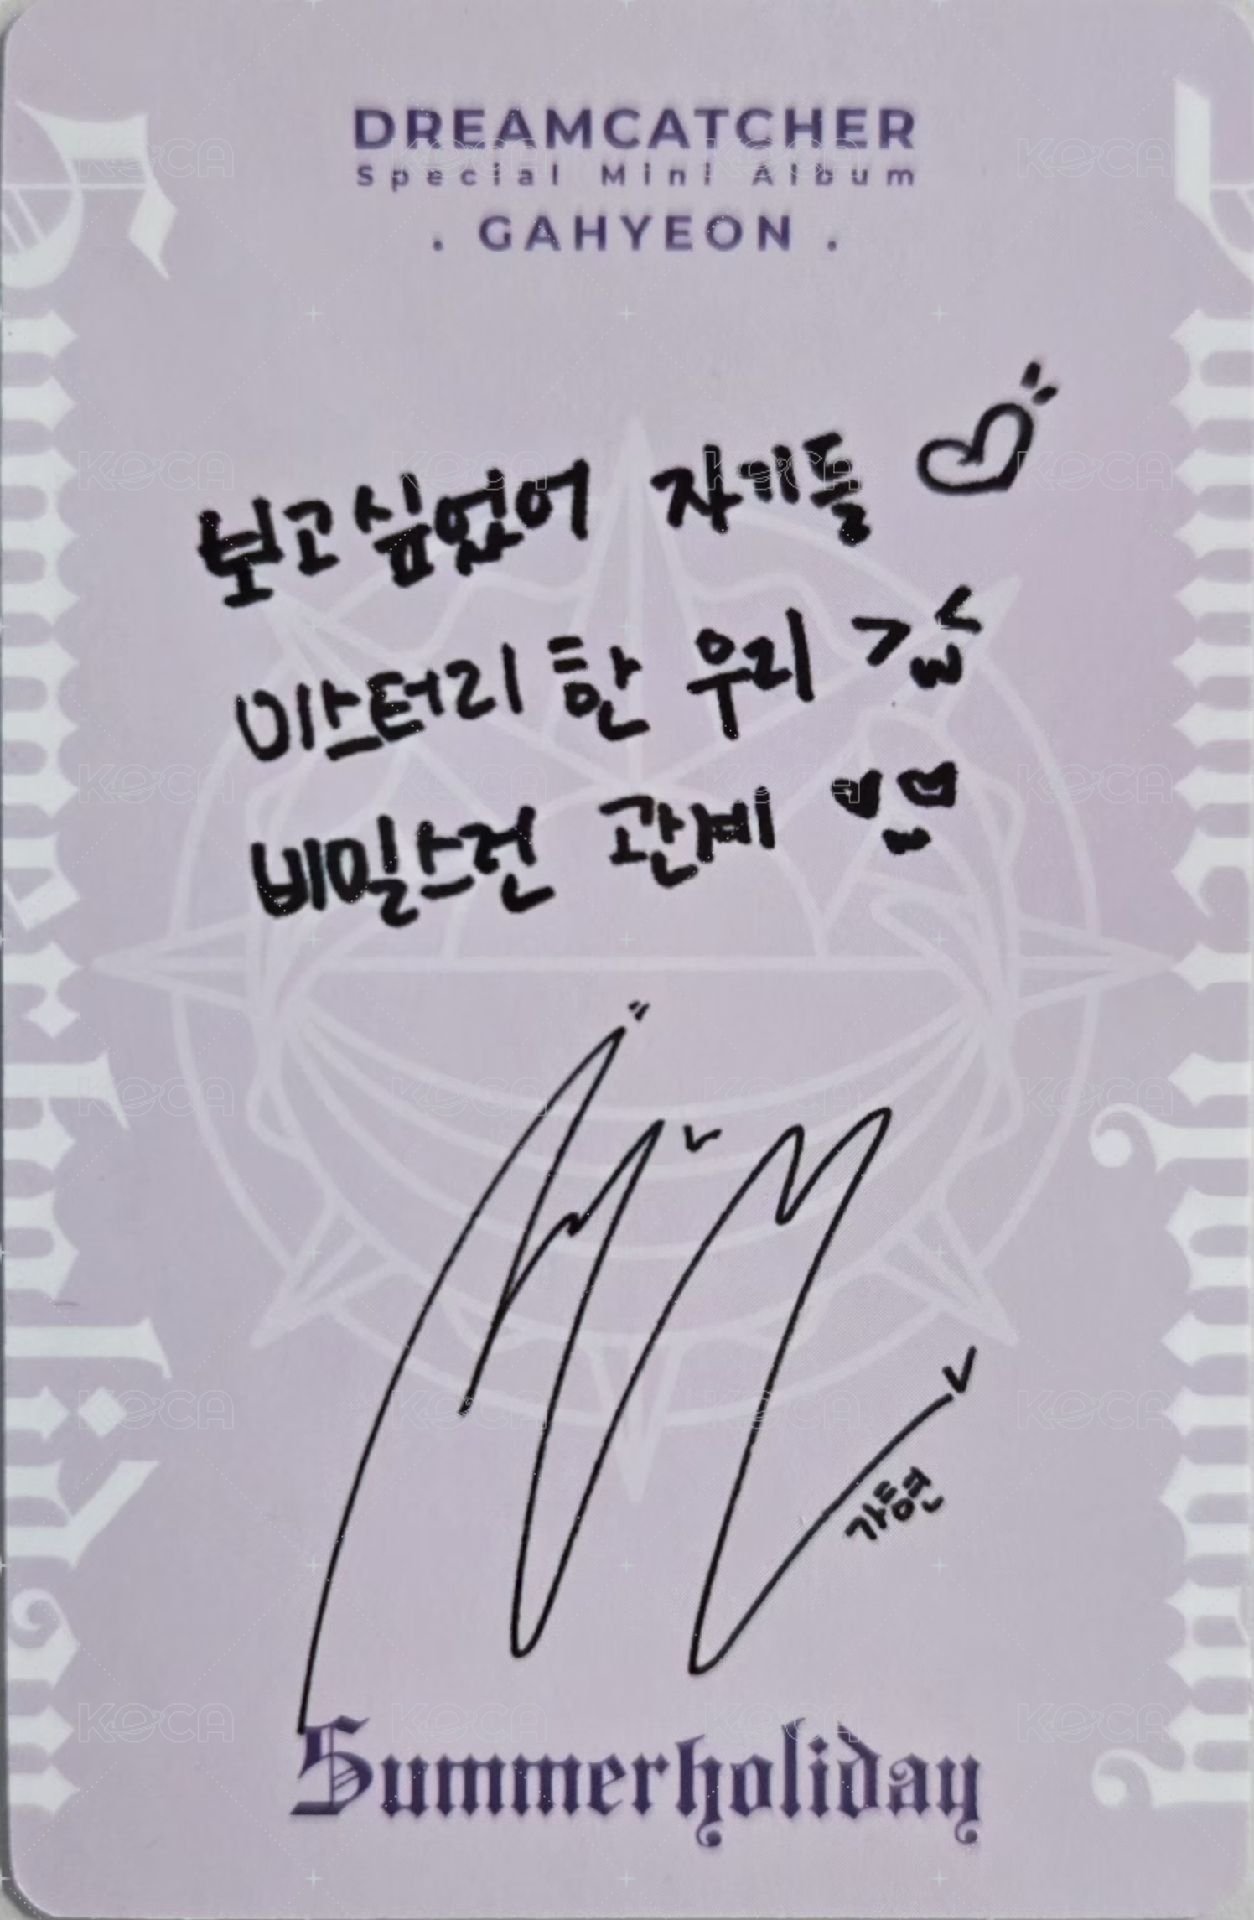 DREAMCATCHER
Special Mini Album
. GAHYEON .
보고싶었어 자기들 ♡
미스터리 한 우리 >ω<
비밀스런 관계
가현
Summerholiday
Summerholiday
Summerholiday
KOCA